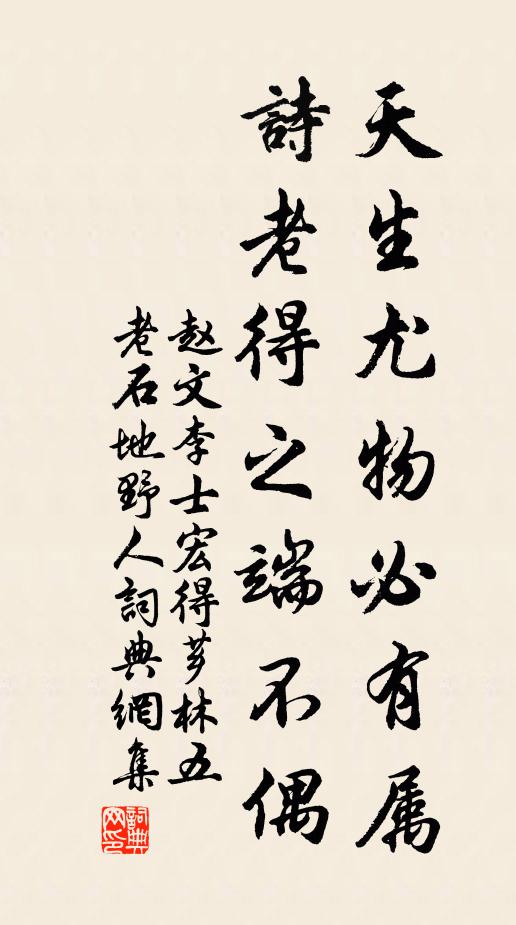 天生尤物必有属
詩老得之端不偶
赵文李士宏得芗林五
老石地野人詞典網集
詞典网印